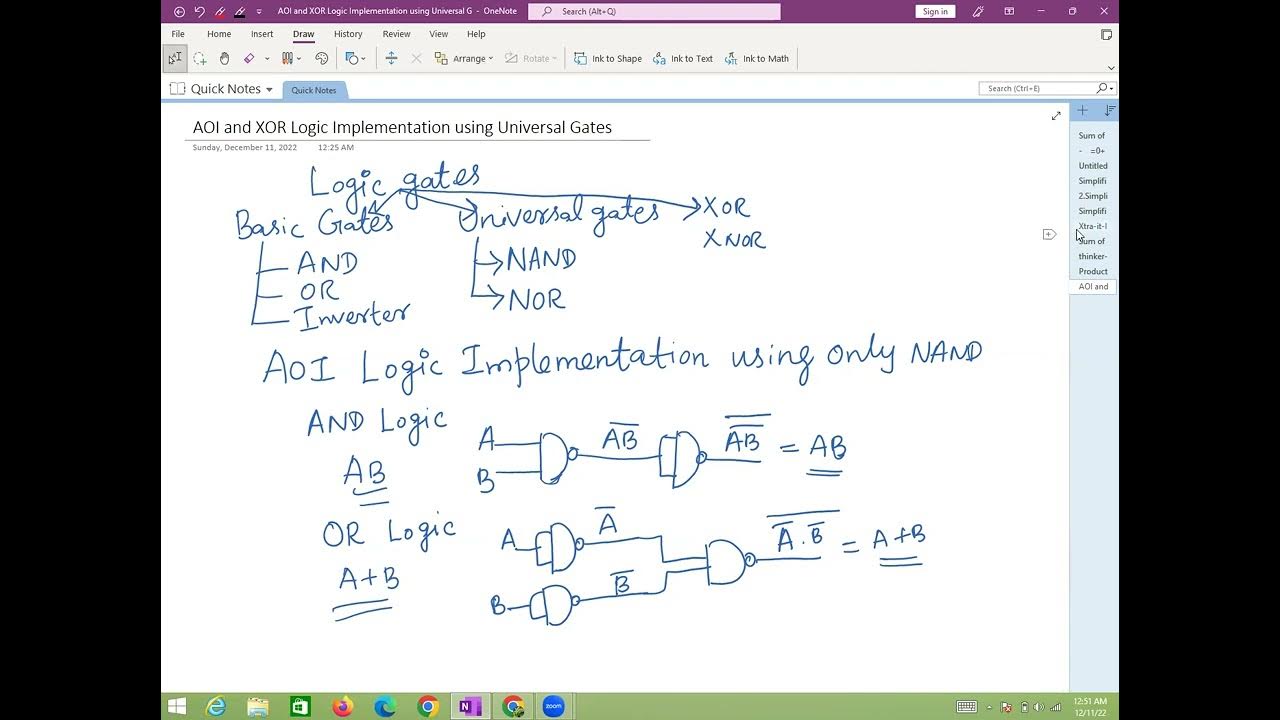 AOI and XOR Logic Implementation using Universal G - OneNote
Search (Alt+Q)
Sign in
File Home Insert Draw History Review View Help
Arrange Rotate Ink to Shape Ink to Text Ink to Math
Quick Notes Quick Notes Search (Ctrl+E)
AOI and XOR Logic Implementation using Universal Gates
Sunday, December 11, 2022 12:25 AM
Sum of
- =0+
Untitled
Simplifi
2.Simpli
Simplifi
Xtra-it-I
Sum of
thinker-
Product
AOI and
Logic gates
Basic Gates Universal gates XOR
XNOR
AND NAND
OR NOR
Inverter
AOI Logic Implementation using only NAND
AND Logic
AB
A
B
A̅B̅
A̿B̿ = AB
OR Logic
A+B
A A̅
B B̅
\overline{A̅.B̅} = A+B
zoom
12:51 AM
12/11/22